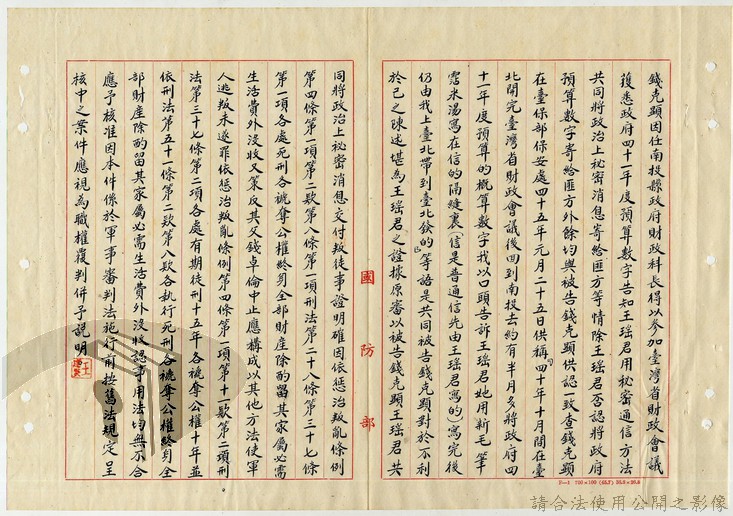 錢克顯因任南投縣政府財政科長得以參加臺灣省財政會議
獲悉政府四十一年度預算數字告知王瑤君用秘密通信方法
共同將政治上秘密消息寄給匪方等情除王瑤君否認將政府
預算數字寄給匪方外餘均與被告錢克顯供認一致查錢克顯
在臺保部保安處四十五年元月二十五日供稱「四十年十月間在臺
北開完臺灣省財政會議後回到南投去約有半月多將政府四
十一年度預算的概算數字我以口頭告訴王瑤君她用新毛筆
霑米湯寫在信的隔縫裏(信是普通信先由王瑤君寫的)寫完後
仍由我上臺北帶到臺北發的」等語是共同被告錢克顯對於不利
於己之陳述堪為王瑤君之證據原審以被告錢克顯王瑤君共
國防部
同將政治上秘密消息交付叛徒事證明確因依懲治叛亂條例
第四條第一項第二款第八條第一項刑法第二十八條第三十七條
第一項各處死刑各褫奪公權終身全部財產除酌留其家屬必需
生活費外沒收又策反其父錢卓倫中止應構成以其他方法使軍
人逃叛未遂罪依懲治叛亂條例第四條第一項第十一款第二項刑
法第三十七條第二項各處有期徒刑十五年各褫奪公權十年並
依刑法第五十一條第二款第八款各執行死刑各褫奪公權終身全
部財產除酌留其家屬必需生活費外沒收認事用法均無不合
應予核准因本件係於軍事審判法施行前按舊法規定呈
核中之案件應視為職權覆判併予說明
請合法使用公開之影像